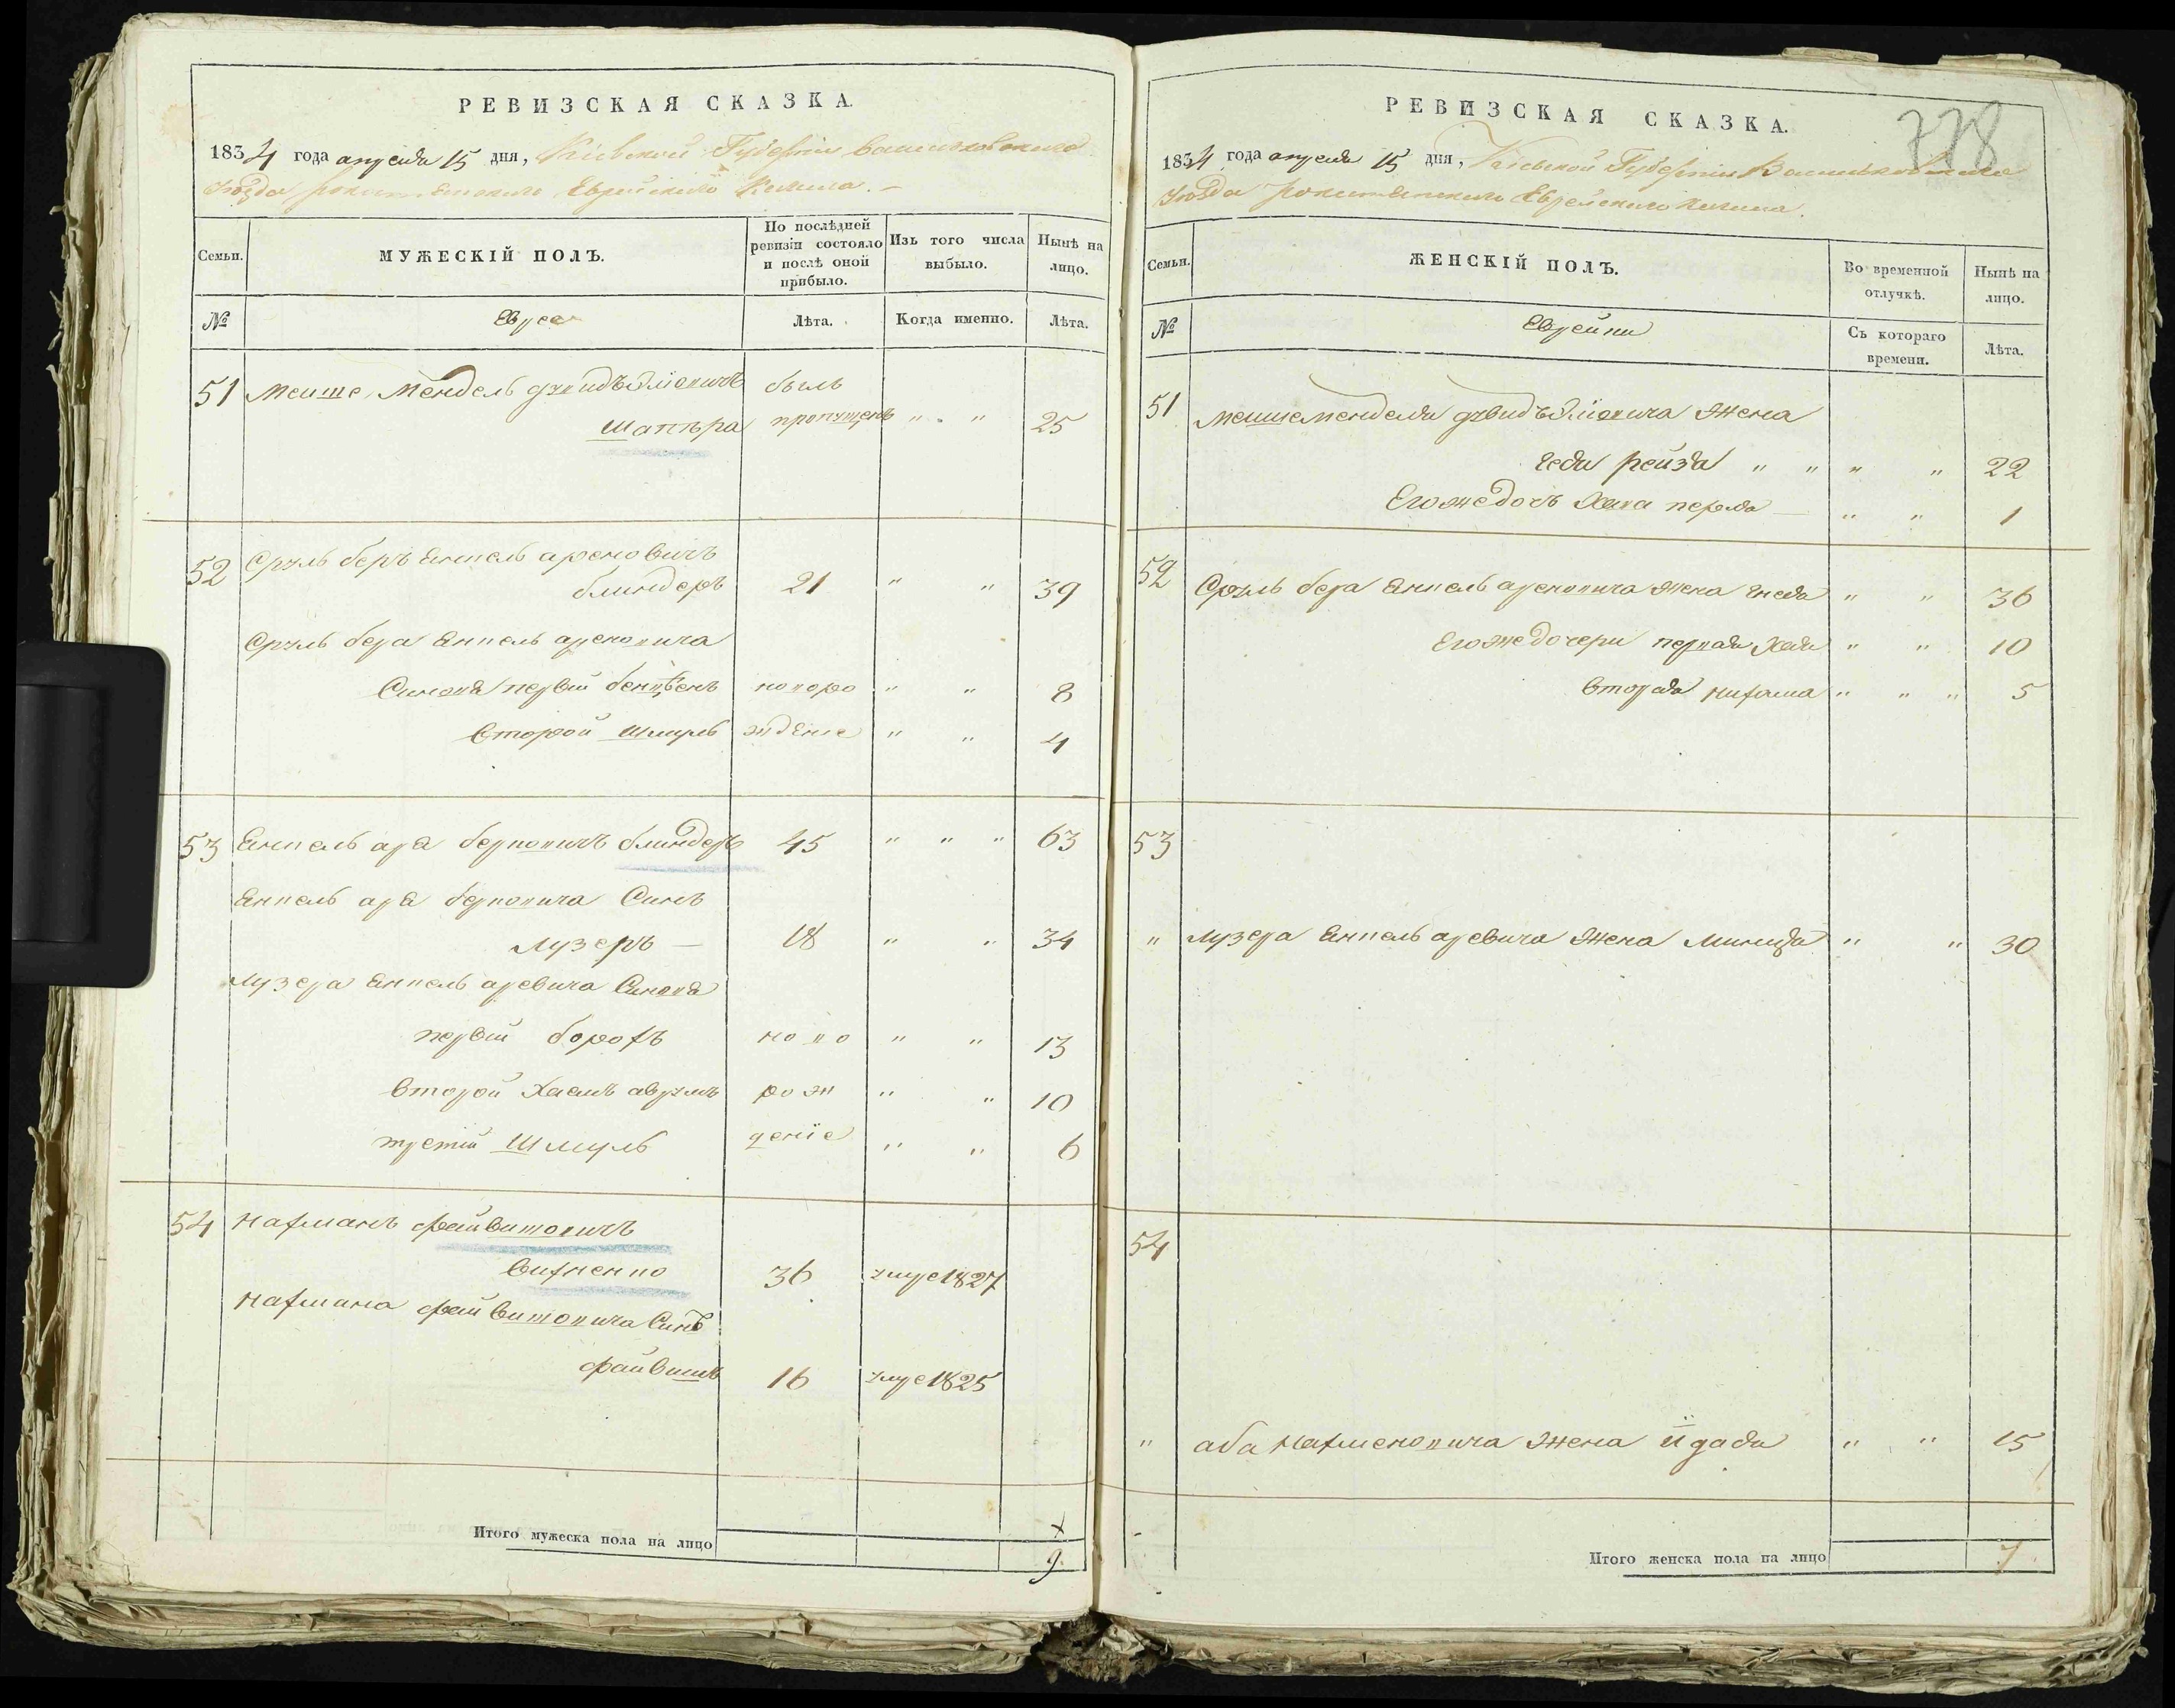 РЕВИЗСКАЯ СКАЗКА.
1834 года апреля 15 дня, Кіевской Губерніи Васильковскаго
Уѣзда рокитянскаго Еврейскаго Кагала. –
Семьи.
МУЖЕСКІЙ ПОЛЪ.
По послѣдней ревизіи состояло и послѣ оной прибыло.
Изъ того числа выбыло.
Нынѣ на лицо.
№
Евреи
Лѣта.
Когда именно.
Лѣта.
51 Мейше Мендель
Шапѣра былъ пропущенъ " " 25
52 Сруль беръ Енкель ароновичъ
блиндеръ 21 " " 39
Сруль бера Енкель ароновича
Синовя первий бенцѣенъ новоро " " 8
второй Шмуль жденіе " " 4
53 Енкель аре берковичъ блиндеръ 45 " " " 63
Енкель аре берковича Синъ
Лузеръ — 18 " " 34
Лузера Енкель аревича Синовя
первий борохъ ново " " 13
второй Хаемъ аврумъ рож " " 10
третій Шмуль деніе " " 6
54 Нахманъ файвишовичъ
Вихненко 36 умре 1827
Нахмана файвишовича Синъ
файвишъ 16 умре 1825
Итого мужеска пола на лицо 9.
778
РЕВИЗСКАЯ СКАЗКА.
1834 года апреля 15 дня, Кіевской Губерніи Васильковскаго
Уѣзда рокитянскаго Еврейскаго Кагала.
Семьи.
ЖЕНСКІЙ ПОЛЪ.
Во временной отлучкѣ.
Нынѣ на лицо.
№
Еврейки
Съ котораго времени.
Лѣта.
51 Мейше Менделя Жена
рейзя " " " " 22
Егоже дочь Хана перля — " " 1
52 Сруль бера Енкель ароновича Жена Гнеся " " 36
Егоже дочери первая Хая " " 10
вторая " " " 5
53
" Лузера Енкель аревича Жена Миндя " " 30
54
" аба Нахмановича Жена " " 15
Итого женска пола на лицо 7.